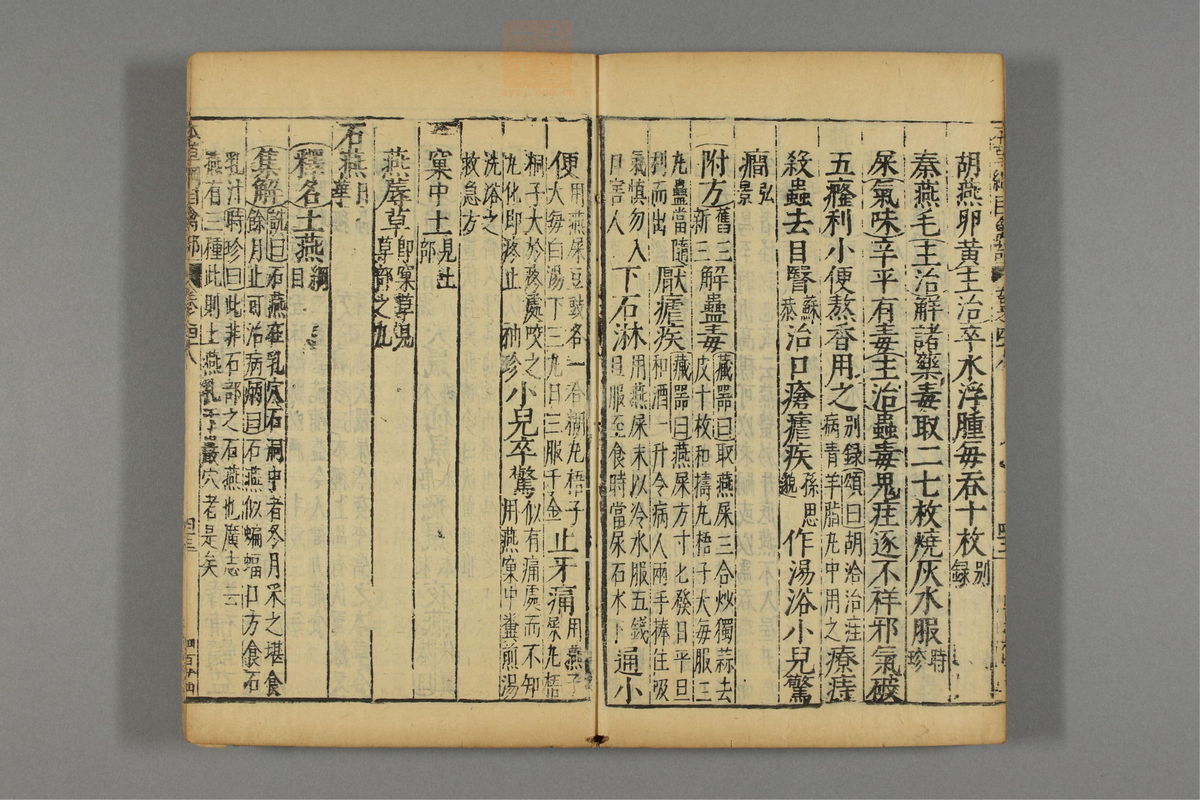 胡燕卵黄主治卒水浮腫每吞十枚別録
秦燕毛主治解諸藥毒取二七枚燒灰水服時珍
屎氣味辛平有毒主治蠱毒鬼疰逐不祥邪氣破
五癃利小便熬香用之別録頌曰胡洽治疰病青羊脂丸中用之療痔
殺蟲去目瞖蘇恭治口瘡瘧疾孫思邈作湯浴小兒驚
癇弘景
附方舊三新三解蠱毒藏器曰取燕屎三合炒獨蒜去皮十枚和擣丸梧子大每服三
丸蠱當隨利而出厭瘧疾藏器曰燕屎方寸匕發日平旦和酒一升令病人兩手捧住吸
氣慎勿入口害人下石淋用燕屎末以冷水服五錢旦服至食時當尿石水下通小
便用燕屎豆豉各一合糊丸梧子大每白湯下三丸日三服千金止牙痛用燕子屎丸梧
桐子大於疼處咬之丸化即疼止袖珍小兒卒驚似有痛處而不知用燕窠中糞煎湯
洗浴之救急方
窠中土見土部
燕蓐草即窠草見草部之九
石燕日華
釋名土燕綱目
集解詵曰石燕在乳穴石洞中者冬月采之堪食餘月止可治病炳曰石燕似蝙蝠口方食石
乳汁時珍曰此非石部之石燕也廣志云燕有三種此則土燕乳于巖穴者是矣